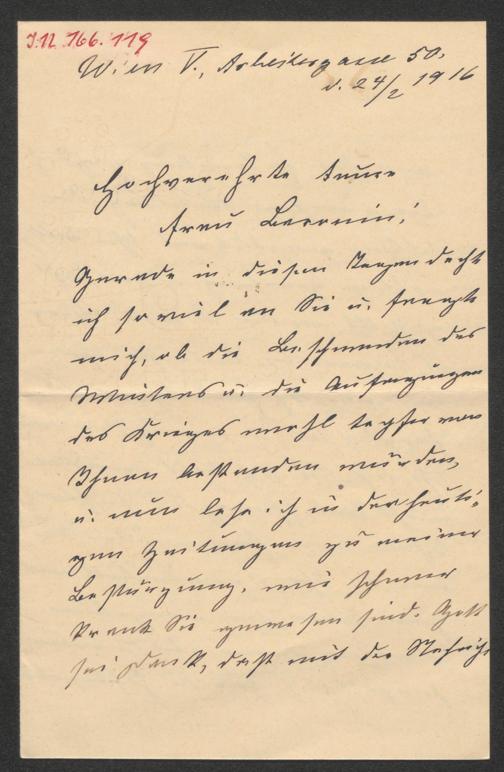 J.N. 166.119
Wien V., Arbeitergasse 50.
d. 24/2 1916
Hochverehrte teure
Frau Baronin!
Gerade in diesen Tagen dacht
ich so viel an Sie u. fragte
mich, ob die Beschwerden des
Winters u. die Aufregungen
des Krieges wohl tapfer von
Ihnen bestanden würden,
u. nun lese ich in den heuti-
gen Zeitungen zu meiner
Bestürzung, wie schwer
krank Sie gewesen sind. Gott
sei Dank, daß mit der Nachricht